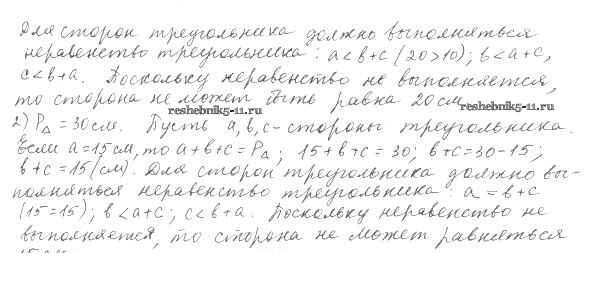 Для сторон треугольника должно выполняться
неравенство треугольника: a < b + c (20 > 10); b < a + c,
c < b + a. Поскольку неравенство не выполняется,
то сторона не может быть равна 20 см.
reshebnik5-11.ru reshebnik5-11.ru
2) P△ = 30 см. Пусть a, b, c - стороны треугольника.
Если a = 15 см, то a + b + c = P△; 15 + b + c = 30; b + c = 30 - 15;
b + c = 15 (см). Для сторон треугольника должно вы-
полняться неравенство треугольника: a = b + c
(15 = 15); b < a + c; c < b + a. Поскольку неравенство не
выполняется, то сторона не может равняться